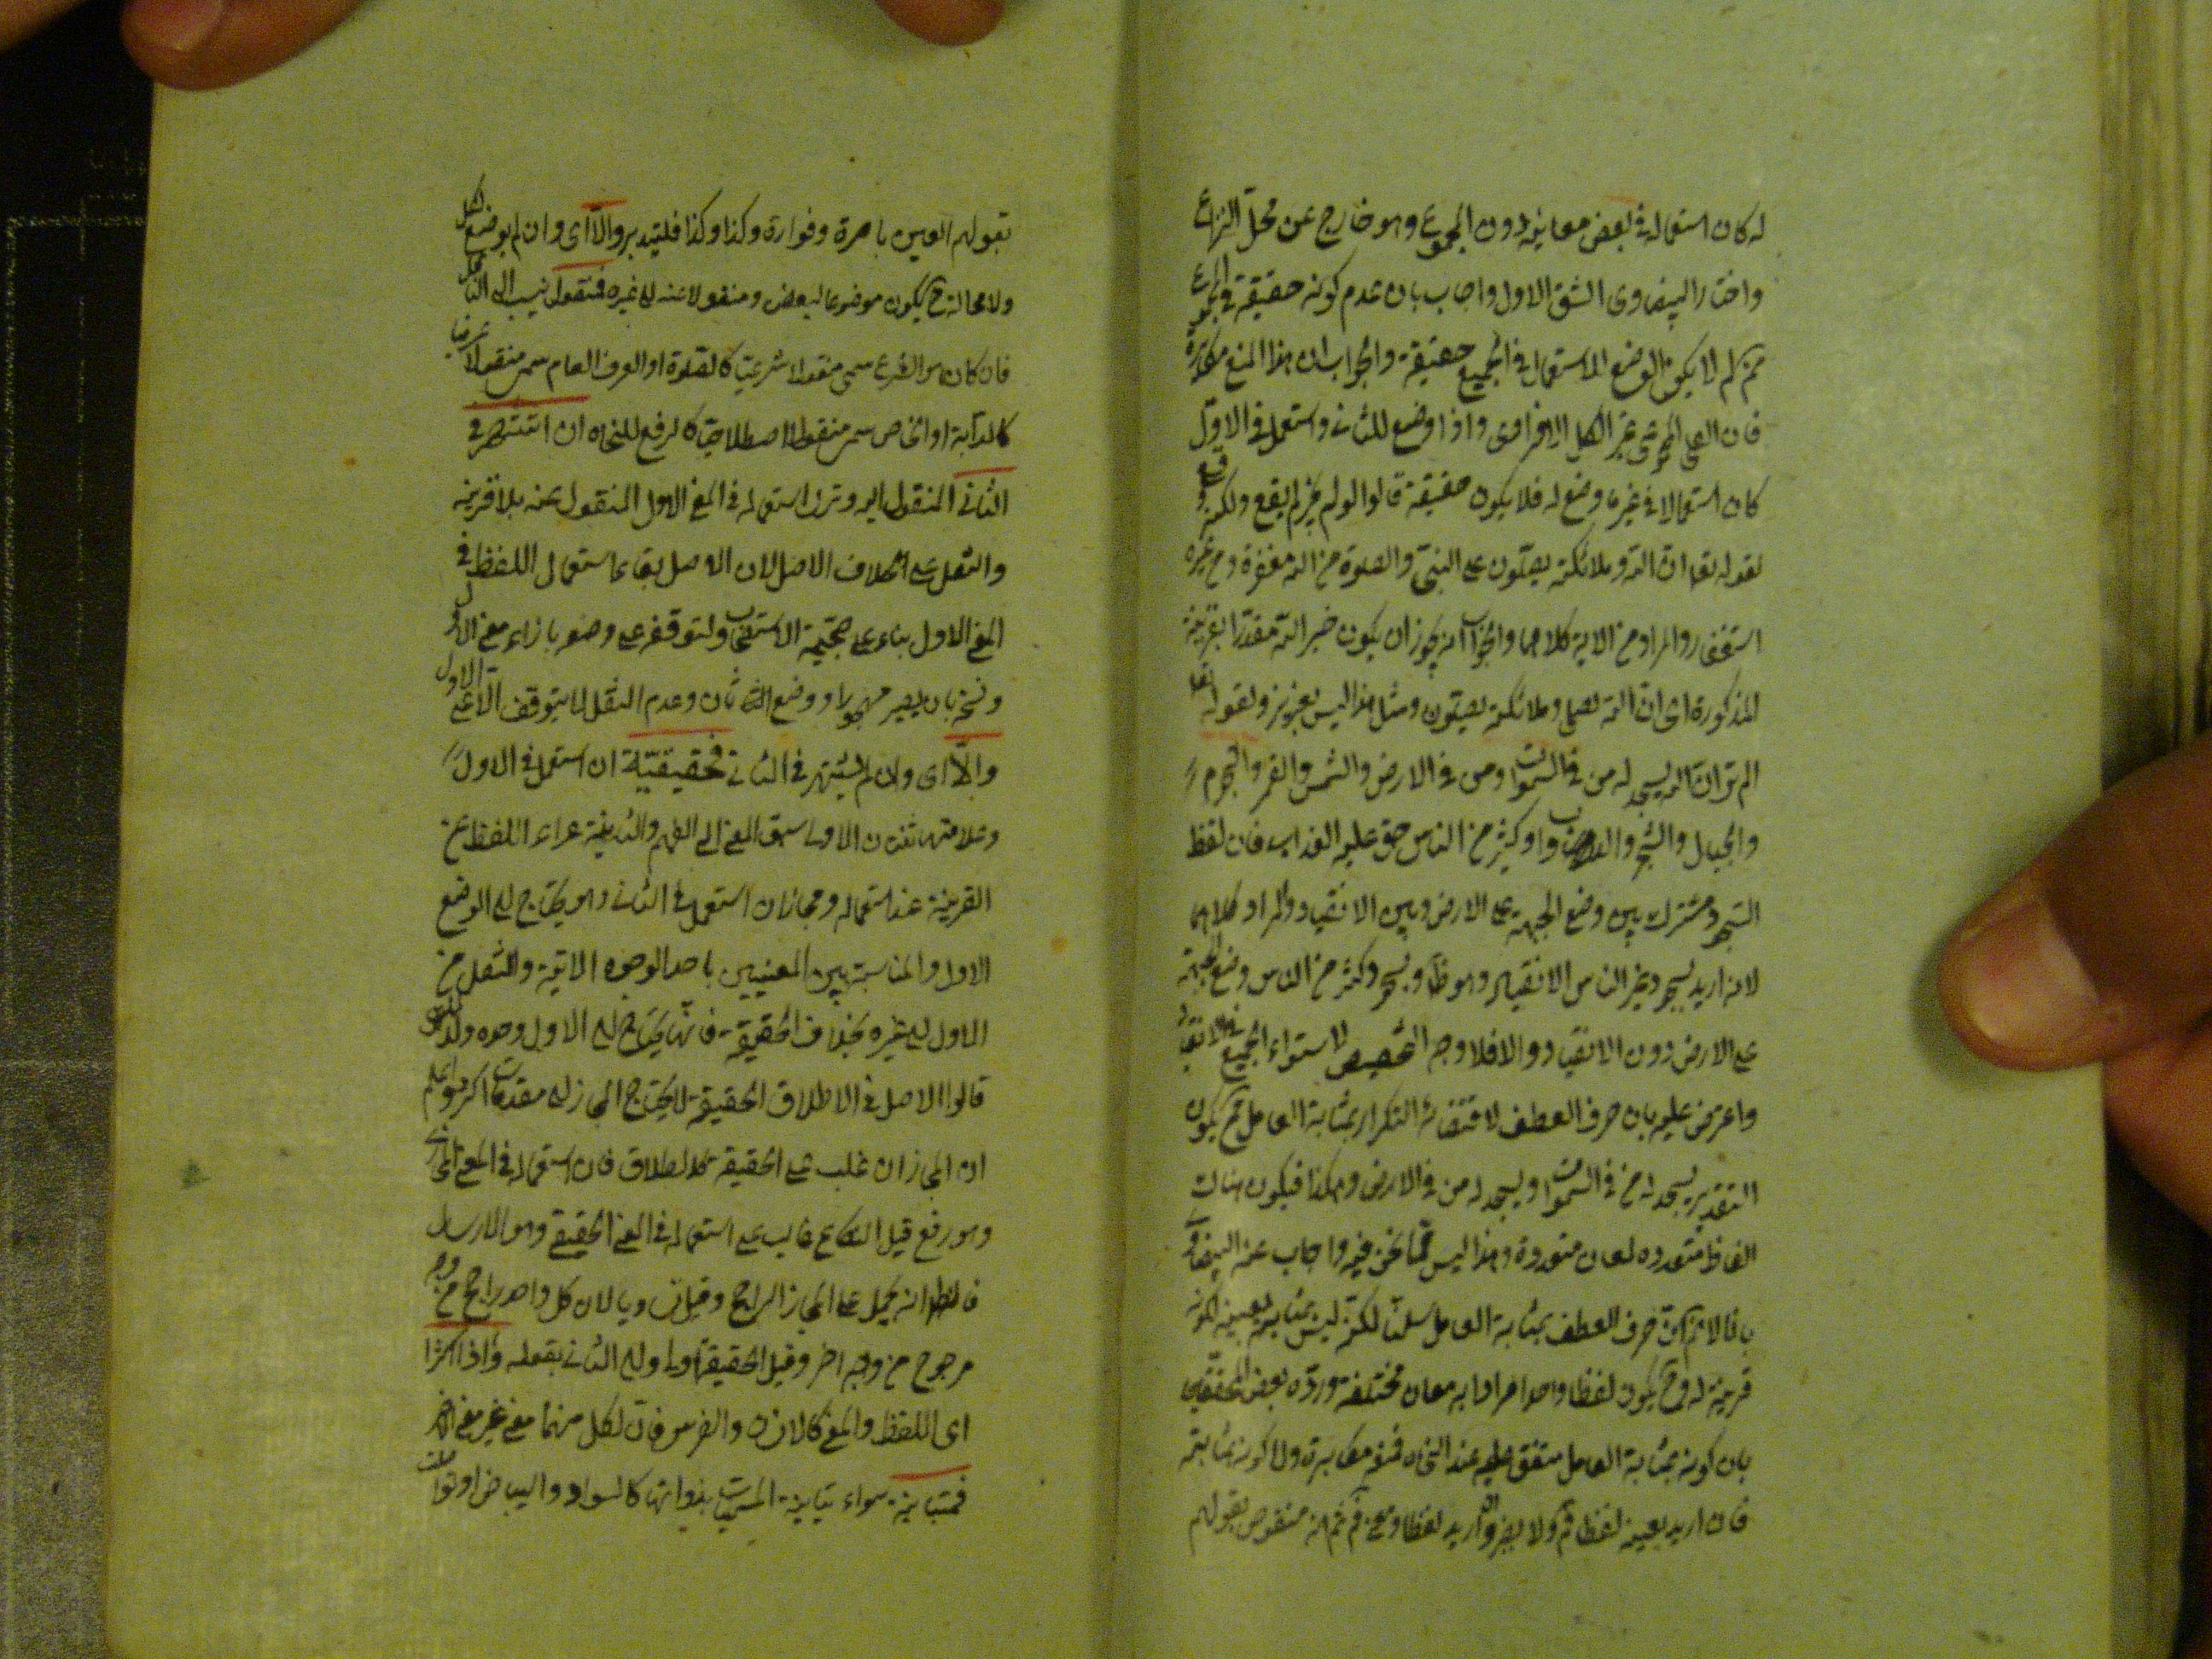 له كان استعماله في بعض معانيه دون المجموع وهو خارج عن محل النزاع
واختار البيضاوى الشق الاول واجاب بان عدم كونه حقيقة في المجموع
مم لم لا يكون الوضع للاستعمال في الجميع حقيقة والجواب ان هذا المنع مكابرة
فان الكل المجموعى غير الكل الافرادى واذا وضع للثانى واستعمل في الاول
كان استعمالا في غير ما وضع له فلا يكون حقيقة قالوا لو لم يجز لم يقع ولكنه وقع
لقوله تعا ان الله وملائكته يصلون على النبى والصلوة من الله مغفرة ومن غيره
استغفار والمراد من الاية كلاهما والجواب انه يجوز ان يكون خبر الله مقدرا بقرينة
المذكورة اى ان الله يصلى وملائكته يصلون ومثل هذا ليس بعزيز ولقوله تعا
الم تر ان الله يسجد له من في السموات ومن في الارض والشمس والقمر والنجوم
والجبال والشجر والدواب وكثير من الناس حق عليه العذاب فان لفظ
السجود مشترك بين وضع الجبهة على الارض وبين الانقياد والمراد كلاهما
لانه اريد بسجود غير الناس الانقياد وهو ظ وبسجود كثير من الناس وضع الجبهة
على الارض دون الانقياد والا فلا وجه التخصيص لاستواء الجميع في الانقياد
واعترض عليه بان حرف العطف لاقتضائه التكرار بمثابة العامل فح يكون
التقدير يسجد له من في السموات ويسجد له من في الارض وهكذا فيكون هناك
الفاظ متعدده لمعان متعددة وهذا ليس مما نحن فيه واجاب عنه البيضاوى
بانا لا نم كون حرف العطف بمثابة العامل سلمنا لكنه ليس بمثابته بعينه لكونه
قرينة له فح يكون لفظا واحدا مرادا به معان مختلفة ورده بعض المحققين
بان كونه بمثابة العامل متفق عليه عند النحاه فمنعه مكابرة واما كونه بمثابته
فان اريد بعينه لفظا فم ولا يضر وان اريد لفظا ومعنى فم ثم انه منقوض بقولهم
بقولهم العين باصرة وفوارة وكذا وكذا فليتدبر والا اى وان لم يوضع لكل
ولا محالة ح يكون موضوعا لبعض ومنقولا عنه الى غيره فمنقول ينسب الى الناقل
فان كان هو الشرع سمى منقولا شرعيا كالصلوة او العرف العام سمى منقولا عرفيا
كالدابة او الخاص سمى منقولا اصطلاحيا كالرفع للنحاه ان اشتهر في
الثانى المنقول اليه وترك استعماله في المعنى الاول المنقول عنه بلا قرينة
والنقل على خلاف الاصل لان الاصل بقاء استعمال اللفظ في
المعنى الاول بناء على حجية الاستصحاب ولتوقفه على وضعه بازاء معنى الاول
ونسخه بان يصير مهجورا ووضع الثانى وعدم النقل لا يتوقف الا على الاول
والا اى وان لم يشتهر في الثانى فحقيقة ان استعمل في الاول
وعلامتها ثنتان الاولى سبق المعنى الى الفهم والثانية عراء اللفظ عن
القرينة عند استعماله ومجاز ان استعمل في الثانى وهو يحتاج الى الوضع
الاول والمناسبة بين المعنيين باحد الوجوه الاتية والنقل من
الاول الى غيره بخلاف الحقيقة فانها يحتاج الى الاول وحده ولذلك
قالوا الاصل في الاطلاق الحقيقة لاحتياج المجاز الى مقدمات اكثر واعلم
ان المجاز ان غلب على الحقيقة كالطلاق فان استعماله في المعنى المجازى
وهو رفع قيد النكاح غالب على استعماله في المعنى الحقيقى وهو الارسال
فالظ انه يحمل على المجاز الراجح وقيل تساويا لان كل واحد راجح من وجه
مرجوح من وجه اخر وقيل الحقيقة اولى والى الثانى بقوله واذا كثرا
اى اللفظ والمعنى كالانسان والفرس فان لكل منهما معنى غير معنى الاخر
فمتباينة سواء تباينت المسميات بذواتها كالسواد والبياض او تواصلت